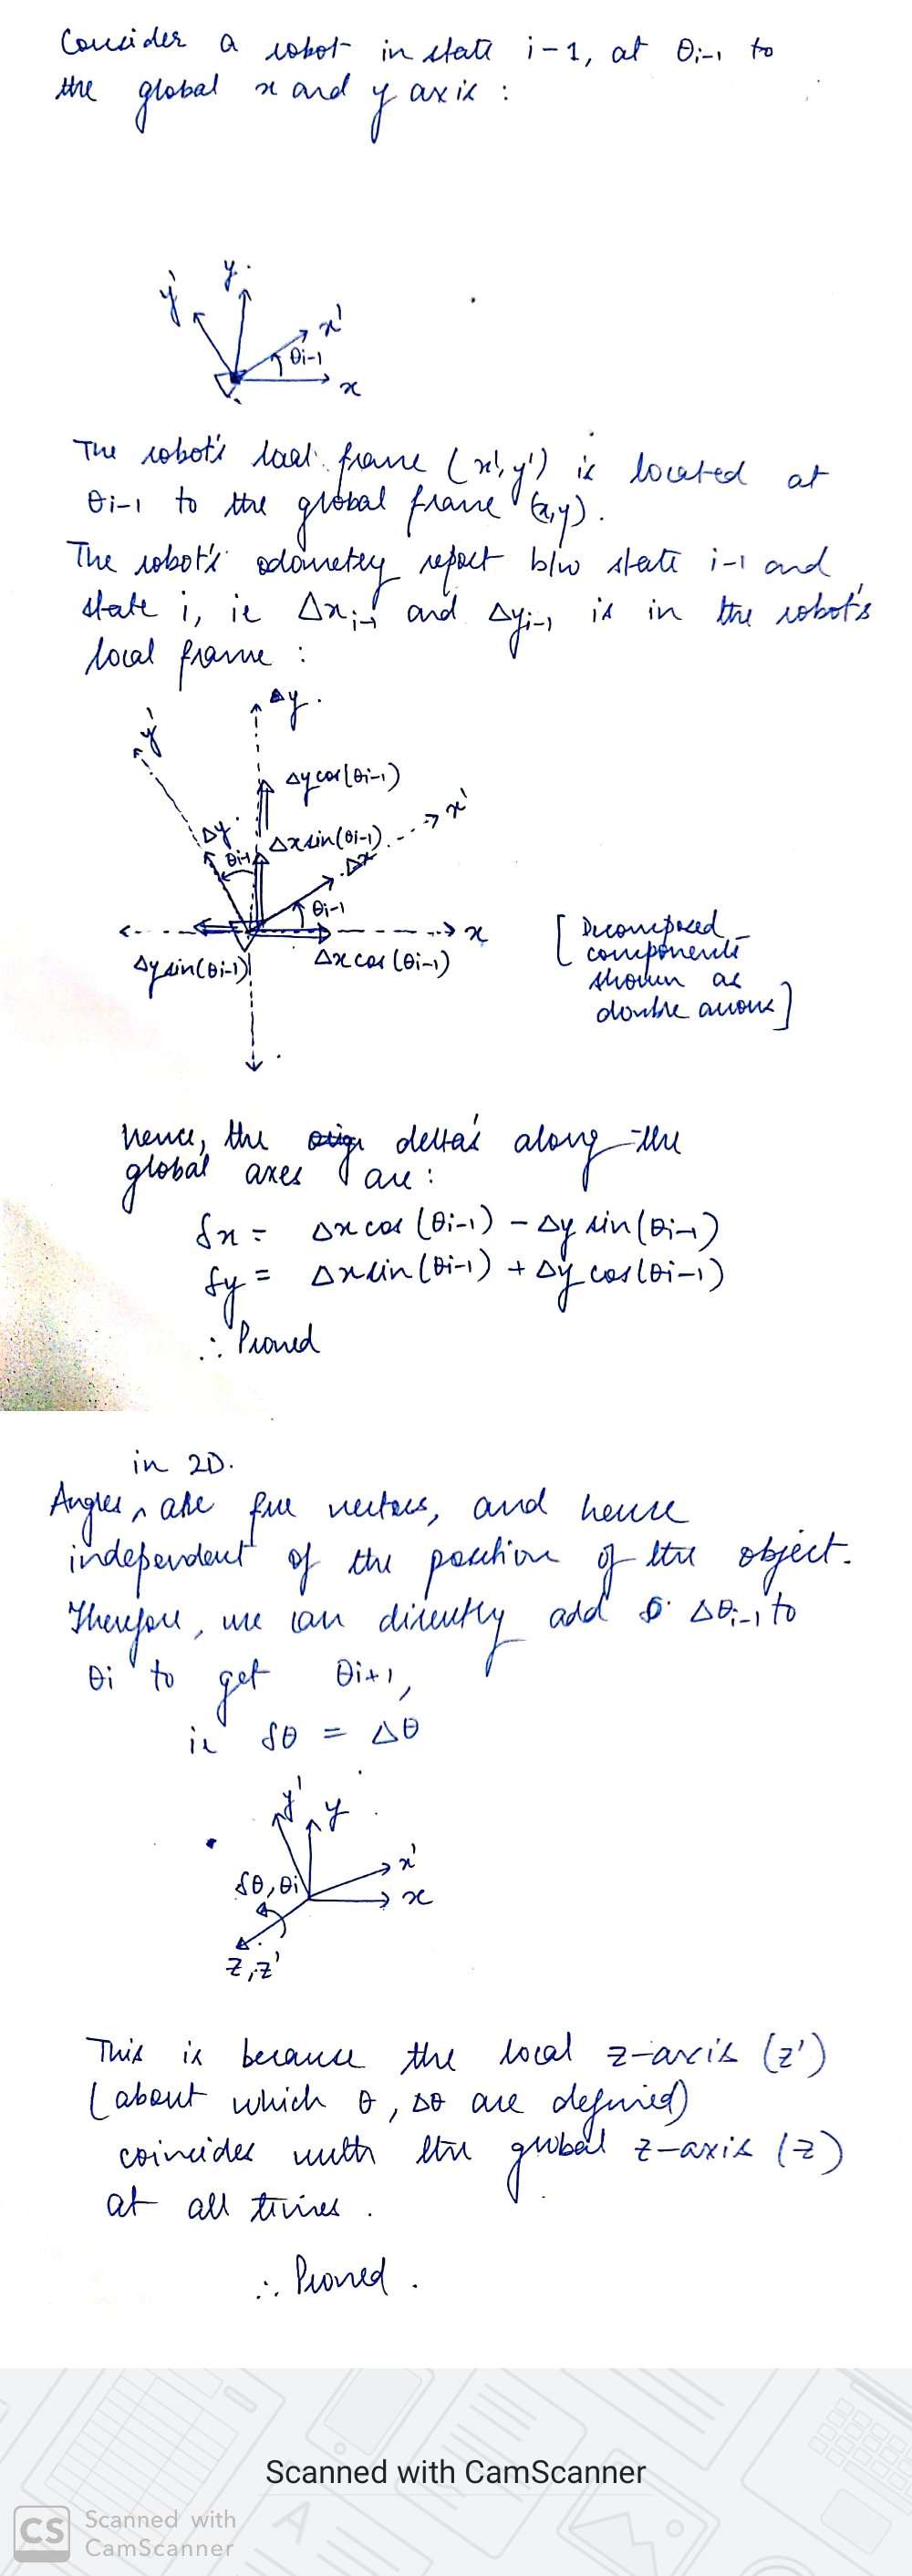 Consider a robot in state i-1, at θi-1 to
the global x and y axis :
y' y
x'
θi-1
x
The robot's local frame (x', y') is located at
θi-1 to the global frame (x,y).
The robot's odometry report b/w state i-1 and
state i, ie Δxi-1 and Δyi-1 is in the robot's
local frame :
Δy
y'
Δy cos(θi-1)
x'
Δy Δx sin(θi-1) Δx
θi-1
θi-1
x
Δy sin(θi-1) Δx cos(θi-1)
[Decomposed
components
shown as
double arrows]
hence, the deltas along the
global axes are :
δx = Δx cos (θi-1) - Δy sin(θi-1)
δy = Δx sin(θi-1) + Δy cos(θi-1)
∴ Proved
in 2D.
Angles ^ are free vectors, and hence
independent of the position of the object.
Therefore, we can directly add Δθi-1 to
θi to get θi+1,
ie δθ = Δθ
y' y
x'
δθ, θi
x
z, z'
This is because the local z-axis (z')
(about which θ, Δθ are defined)
coincides with the global z-axis (z)
at all times.
∴ Proved.
Scanned with CamScanner
CS Scanned with
CamScanner